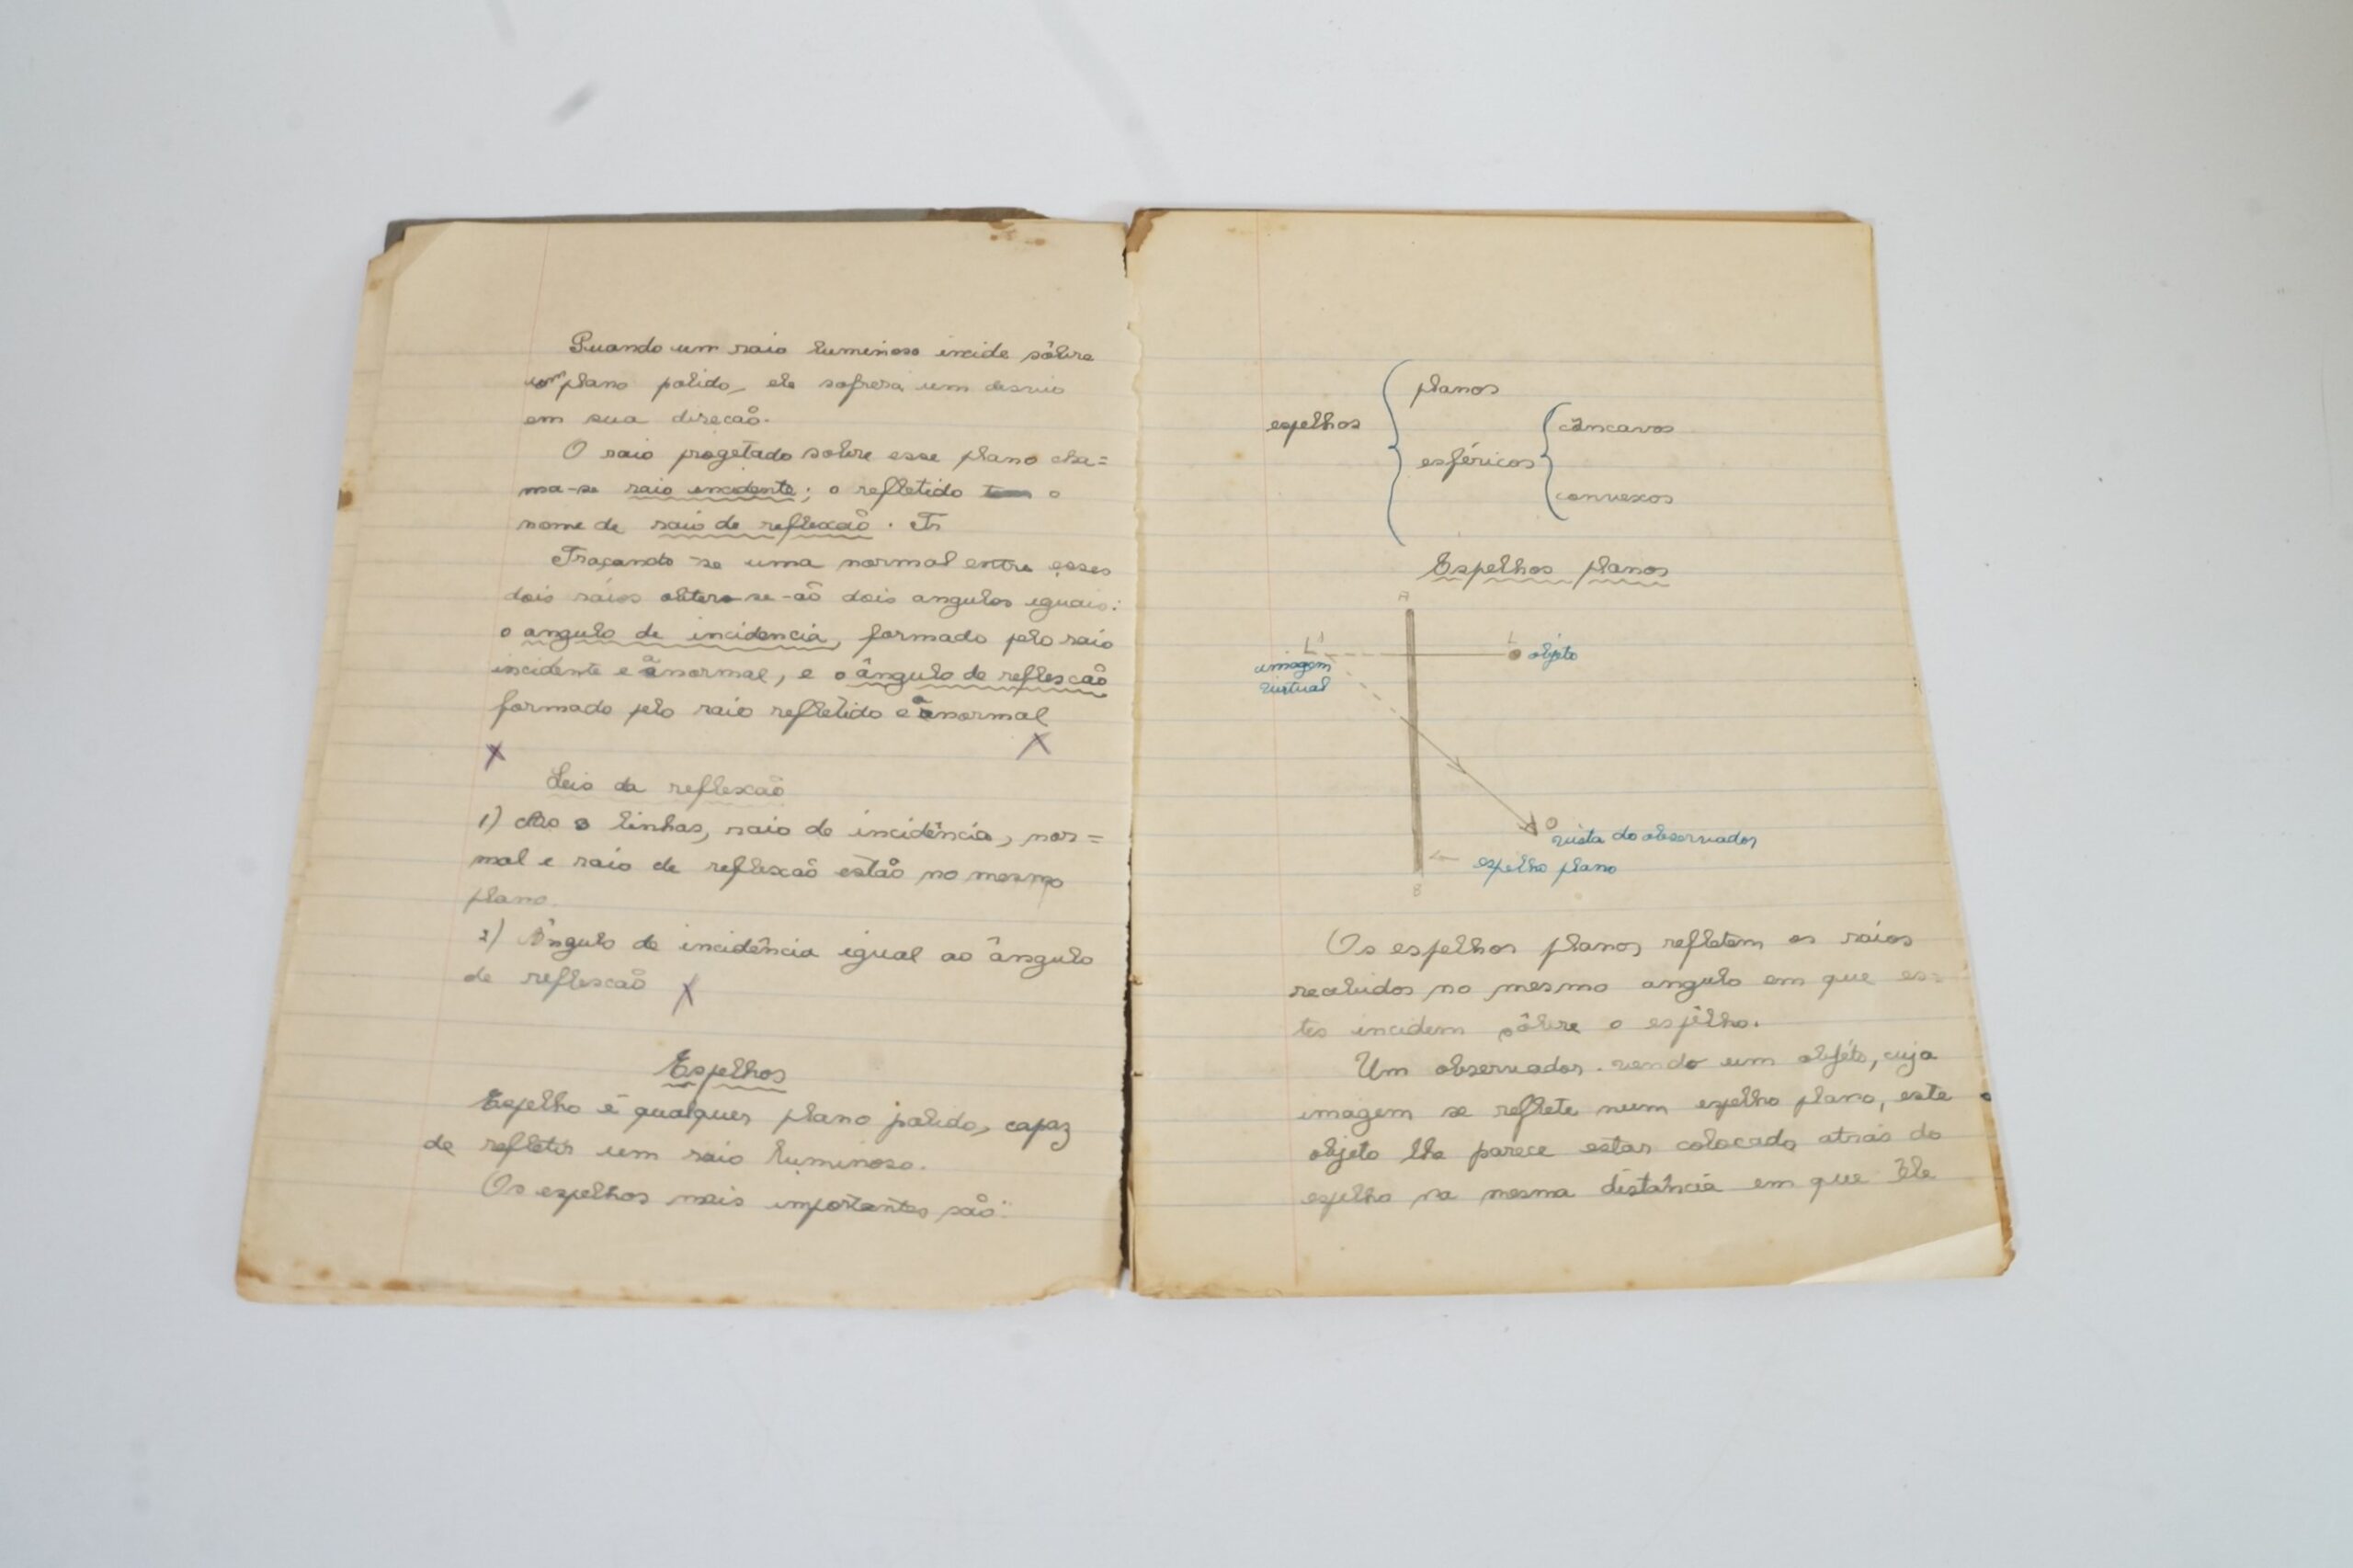 Quando um raio luminoso incide sôbre
um plano polido, ele sofrera um desvio
em sua direcão.
O raio progetado sobre esse plano cha=
ma-se raio incidente; o refletido tem o
nome de raio de reflexão. Tr
Traçando-se uma normal entre esses
dois ráios obter-se-ão dois angulos iguais:
o angulo de incidencia, formado pelo raio
incidente e a normal, e o ângulo de reflexão
formado pelo raio refletido e a normal
X X
Leis da reflexão
1) As 3 linhas, raio de incidência, nor=
mal e raio de reflexão estão no mesmo
plano.
2) Ângulo de incidência igual ao ângulo
de reflexão X
Espelhos
Espelho é qualquer plano polido, capaz
de refletir um raio luminoso.
Os espelhos mais importantes são:
espelhos
planos
esféricos
câncavos
convexos
Espelhos planos
A
L'
L
objéto
imagem
virtual
O
vista do observador
espelho plano
B
Os espelhos planos refletem os ráios
recebidos no mesmo angulo em que es=
tes incidem sôbre o espêlho.
Um observador vendo um objéto, cuja
imagem se reflete num espelho plano, este
objeto lhe parece estar colocado atrás do
espelho na mesma distância em que êle